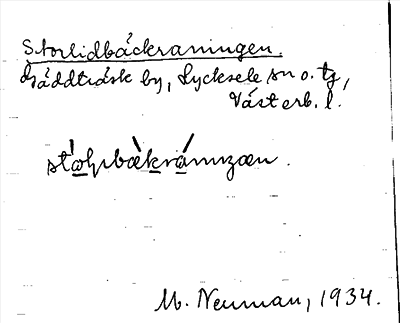 Storlidbäckraningen.
Gäddträsk by, Lycksele sn o. tg,
Västerb. l.
M. Neuman, 1934.